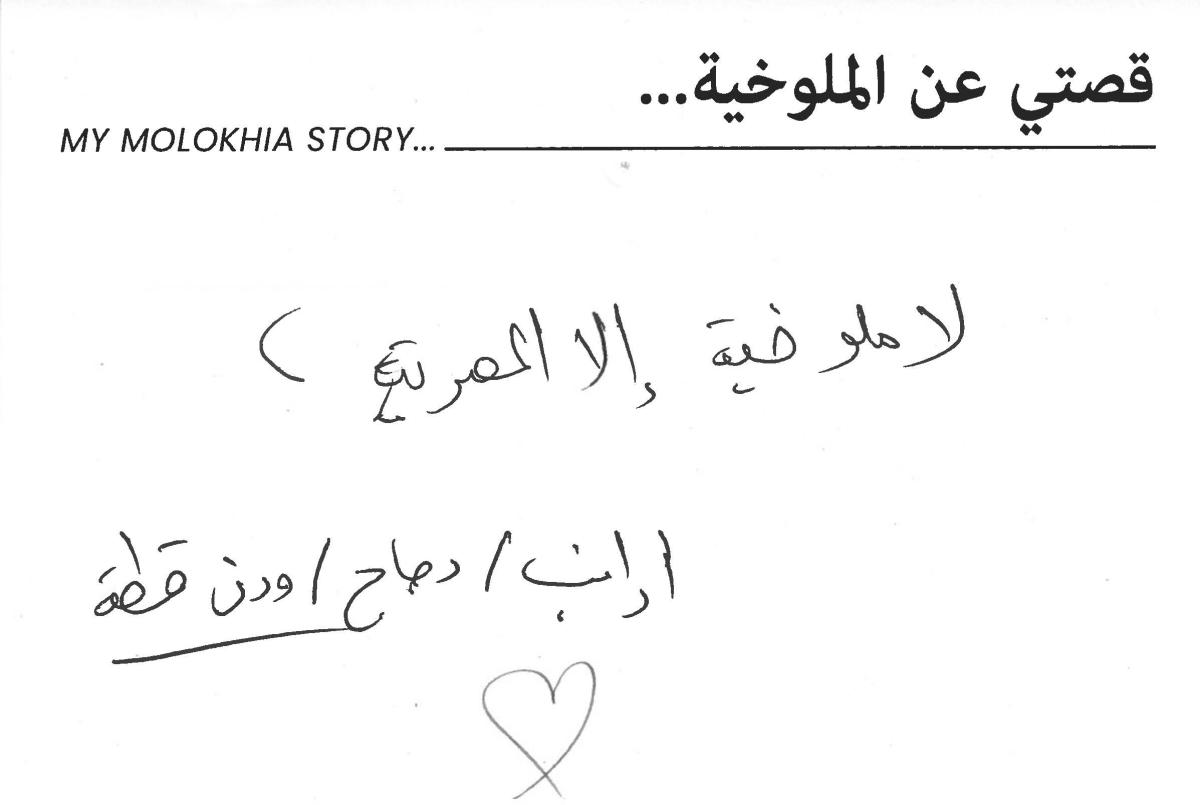 قصتي عن الملوخية...
MY MOLOKHIA STORY...
لا ملوخية إلا المصرية )
ارانب / دجاج / ودن قطة